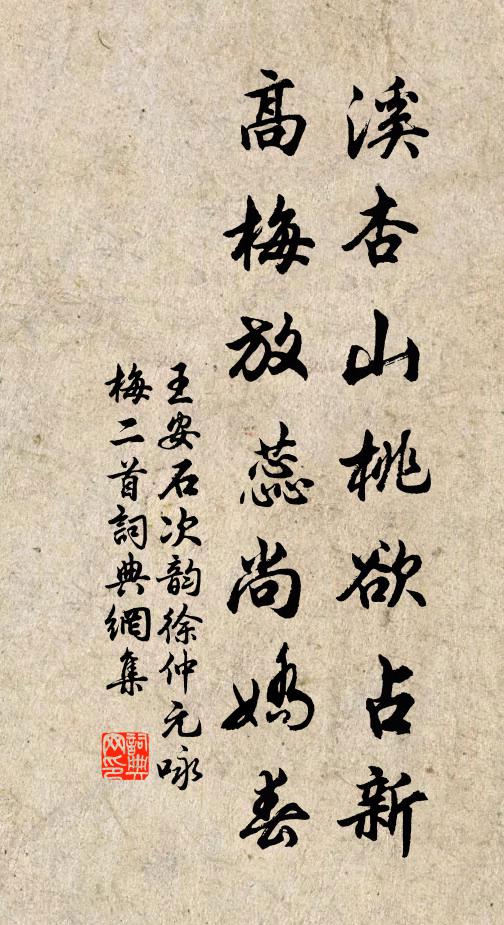 溪杏山桃欲占新
高梅放蕊尚嬌春
王安石次韵徐仲元咏
梅二首詞典網集
詞典网印